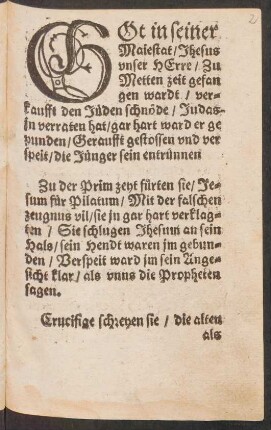 2
GOt in seiner
Maiestat / Jhesus
vnser HErre / Zu
Metten zeit gefan
gen wardt / ver-
kaufft den Jüden schnöde / Judas
in verraten hat / gar hart ward er ge
punden / Geraufft gestossen vnd ver
speit / die Jünger sein entrünnen
Zu der Prim zeyt fürten sie / Je-
sum für Pilatum / Mit der falschen
zeugnus vil / sie jn gar hart verklag-
ten / Sie schlugen Jhesum an sein
Hals / sein Hendt waren jm gebun-
den / Verspeit ward jm sein Ange-
sicht klar / als vnns die Propheten
sagen.
Crucifige schreyen sie / die alten
als